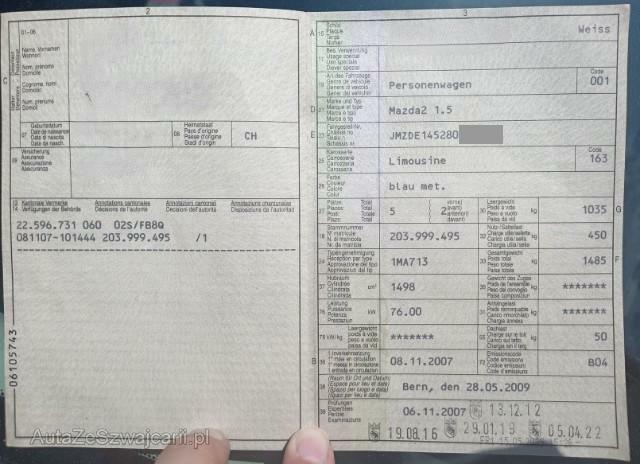 2
01-06
Name, Vornamen
Wohnort
Nom, prénoms
Domicile
Cognome, nomi
Domicilio
Num, prenums
Domicil
C
07
Geburtsdatum
Date de naissance
Data di nascita
Data da nasch.
08
Heimatstaat
Pays d'origine
Paese d'origine
Stadi d'origin
CH
09
Versicherung
Assurance
Assicurazione
Assicuranza
Kantonale Vermerke
Verfügungen der Behörde
Annotations cantonales
Décisions de l'autorité
Annotazioni cantonali
Decisioni dell'autorità
Annotaziuns chantunalas
Disposiziuns da l'autoritad
22.596.731 060 02S/FB8Q
081107-101444 203.999.495 /1
06105743
AutaZeSzwajcarii.pl
3
A
15
Schild
Plaque
Targa
Weiss
Bes. Verwendung
Usage spécial
Uso speciale
Diever spezial
19
Art des Fahrzeugs
Genre de véhicule
Genere di veicolo
Gener dal vehichel
Personenwagen
Code
001
D
21
Marke und Typ
Marque et type
Marca e tipo
Marca e tip
Mazda2 1.5
E
23
JMZDE145280
25
Karosserie
Carrosserie
Carrozzeria
Carossaria
Limousine
Code
163
26
Farbe
Couleur
Colore
Colur
blau met.
27
Plätze Total
Places Total
Posti Totale
Plazs Total
5
2
vorn
avant
anteriori
davant
30
Leergewicht
Poids à vide
Peso a vuoto
Paisa da vid
kg
1035
G
18
Stammnummer
N° matricule
N. di matricola
Nr. da matricla
203.999.495
32
Nutz-/Sattellast
Charge utile/sellette
Carico utile/sella
Chargia utila/sella
kg
450
24
Typengenehmigung
Réception par type
Approvazione del tipo
Approvaziun dal tip
1MA713
33
Gesamtgewicht
Poids total
Peso totale
Paisa totala
kg
1485
F
37
Hubraum
Cylindrée
Cilindrata
Cilindrada
cm³
1498
35
Gewicht des Zuges
Poids de l'ensemble
Peso del convoglio
Paisa cumposiziun
kg
*******
76
Leistung
Puissance
Potenza
Prestaziun
kW
76.00
31
Anhängelast
Poids remorquable
Carico rimorchiato
Chargia annexa
kg
*******
78
kW/kg
Leergewicht
poids à vide
peso a vuoto
paisa da vid
*******
55
Dachlast
Charge sur le toit
Carico sul tetto
Chargia sin il tetg
kg
50
B
36
1. Inverkehrsetzung
1re mise en circulation
1a messa in circolazione
1. entrada en circulaziun
08.11.2007
72
Emissionscode
Code émissions
Codice emissioni
Code d'emissiuns
B04
38
(Raum für Ort und Datum)
(Espace pour lieu et date)
(Spazio per luogo e data)
(Spazi per lieu e data)
Bern, den 28.05.2009
39
Prüfungen
Expertises
Perizie
Examinaziuns
06.11.2007
13.12.12
19.08.16
29.01.19
05.04.22